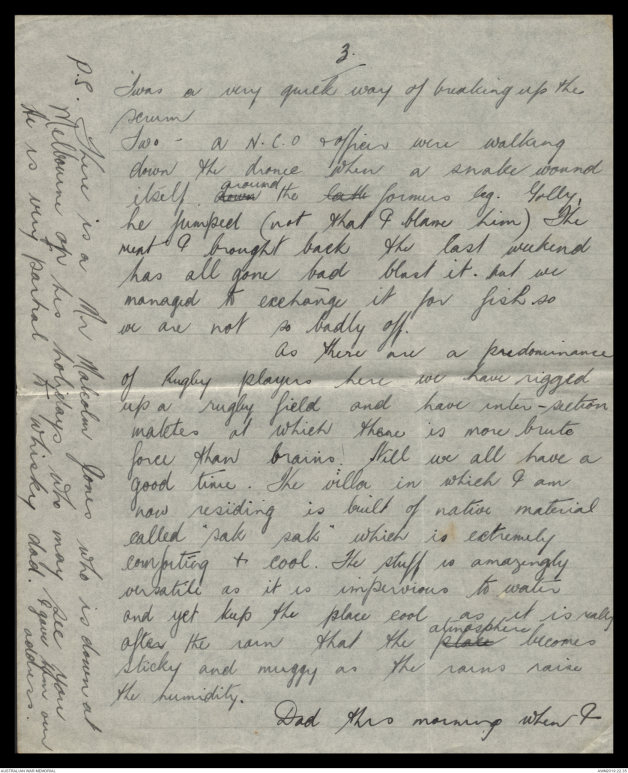 3.
Twas a very quick way of breaking up the
scrum
Two - a N.C.O & officer were walking
down the dronee when a snake wound
itself down around the latt formers leg. Golly,
he jumped (not that I blame him) The
meat I brought back the last weekend
has all gone bad blast it. but we
managed to exchange it for fish so
we are not so badly off.
As there are a predominance
of Rugby players here we have rigged
up a rugby field and have inter-section
matches at which there is more brute
force than brains. Still we all have a
good time. The villa in which I am
now residing is built of native material
called "sak sak" which is extremely
comforting & cool. The stuff is amazingly
versatile as it is impervious to water
and yet keeps the place cool as it is really
after the rain that the place atmosphere becomes
sticky and muggy as the rains raise
the humidity.
Dad this morning when I
P.S. There is a Mr Malcolm Jones who is down at
Melbourne on his holidays who may see you
He is very partial to whisky dad. I gave him our
address.
AUSTRALIAN WAR MEMORIAL